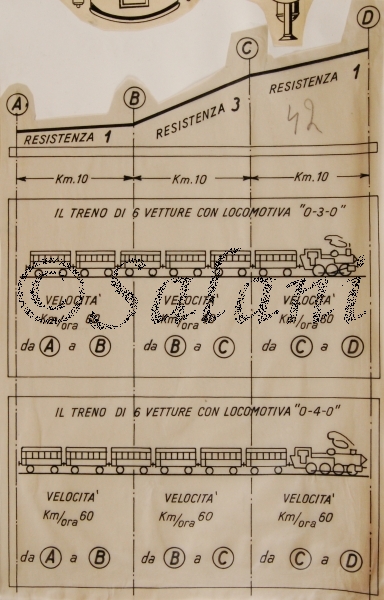 D
C
A
B
RESISTENZA 1
RESISTENZA 3
RESISTENZA 1
42
Km.10 Km.10 Km.10
IL TRENO DI 6 VETTURE CON LOCOMOTIVA "0-3-0"
©Safam
VELOCITA' VELOCITA' VELOCITA'
Km/ora 60 Km/ora Km/ora 60
da A a B da B a C da C a D
IL TRENO DI 6 VETTURE CON LOCOMOTIVA "0-4-0"
VELOCITA' VELOCITA' VELOCITA'
Km/ora 60 Km/ora 60 Km/ora 60
da A a B da B a C da C a D